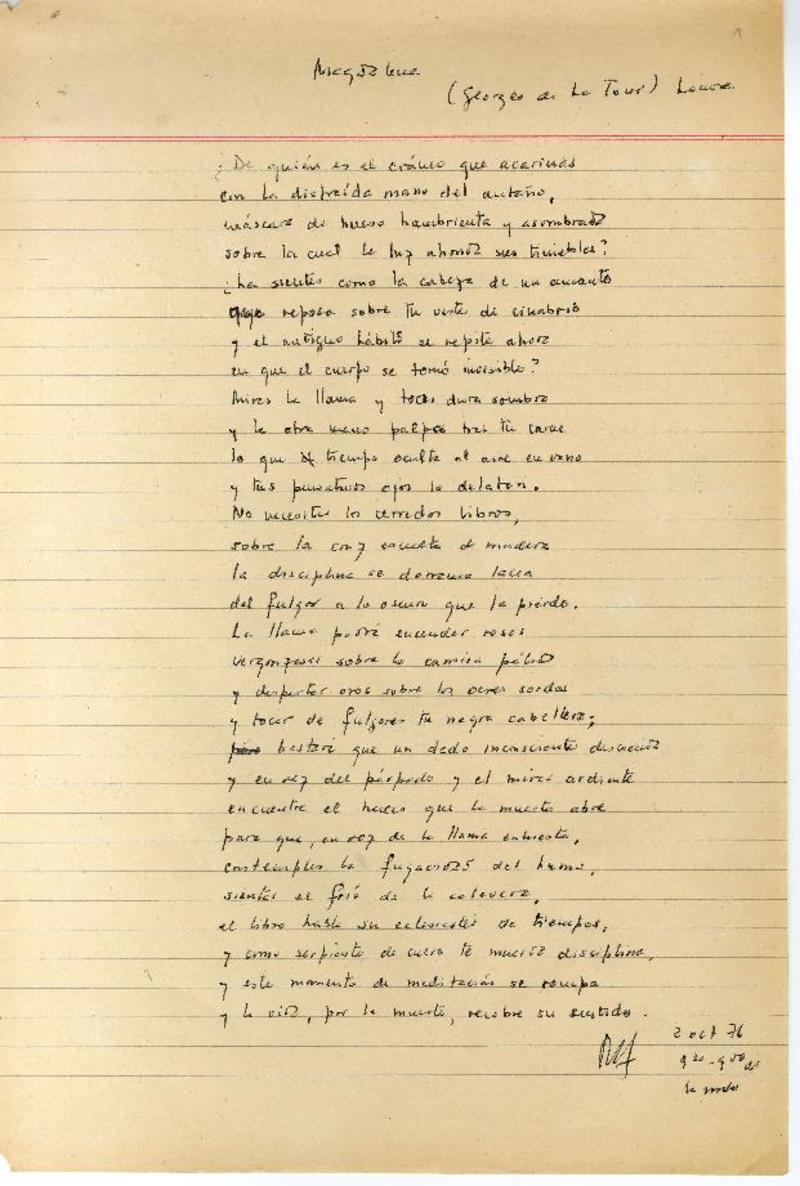 1
Magdalena
(Georges de La Tour) Louvre.
¿De quién es el cráneo que acaricias
con la distraída mano del antaño,
máscara de hueso hambrienta y asombrada
sobre la cual la luz ahonda sus tinieblas?
¿La sientes como la cabeza de un amante
que reposa sobre tu veste de cinabrio
y el antiguo hábito se repite ahora
en que el cuerpo se tornó invisible?
Miras la llama y tocas dura sombra
y la otra mano palpa tras tu carne
lo que el tiempo oculta al aire en vano
y tus pensativos ojos lo delatan.
No necesitas los cerrados libros,
sobre la cruz escueta de madera
la disciplina se derrama lacia
del fulgor a lo oscuro que la pierde.
La llama podrá encender rosas
vergonzosas sobre la camisa pálida
y despertar oros sobre los ocres sordos
y tocar de fulgores tu negra cabellera;
bastará que un dedo inconsciente descienda
y en vez del párpado y el mirar ardiente
encuentre el hueco que la muerte abre
para que, en vez de la llama enhiesta,
contemples la fugacidad del humo,
sientas el frío de la calavera,
el libro hable su eclesiastés de tiempos,
y como serpiente de cuero te muerda disciplina,
y este momento de meditación se rompa
y la vida, por la muerte, recobre su sentido.
2 oct 76
9 30 - 9 50 de
la noche